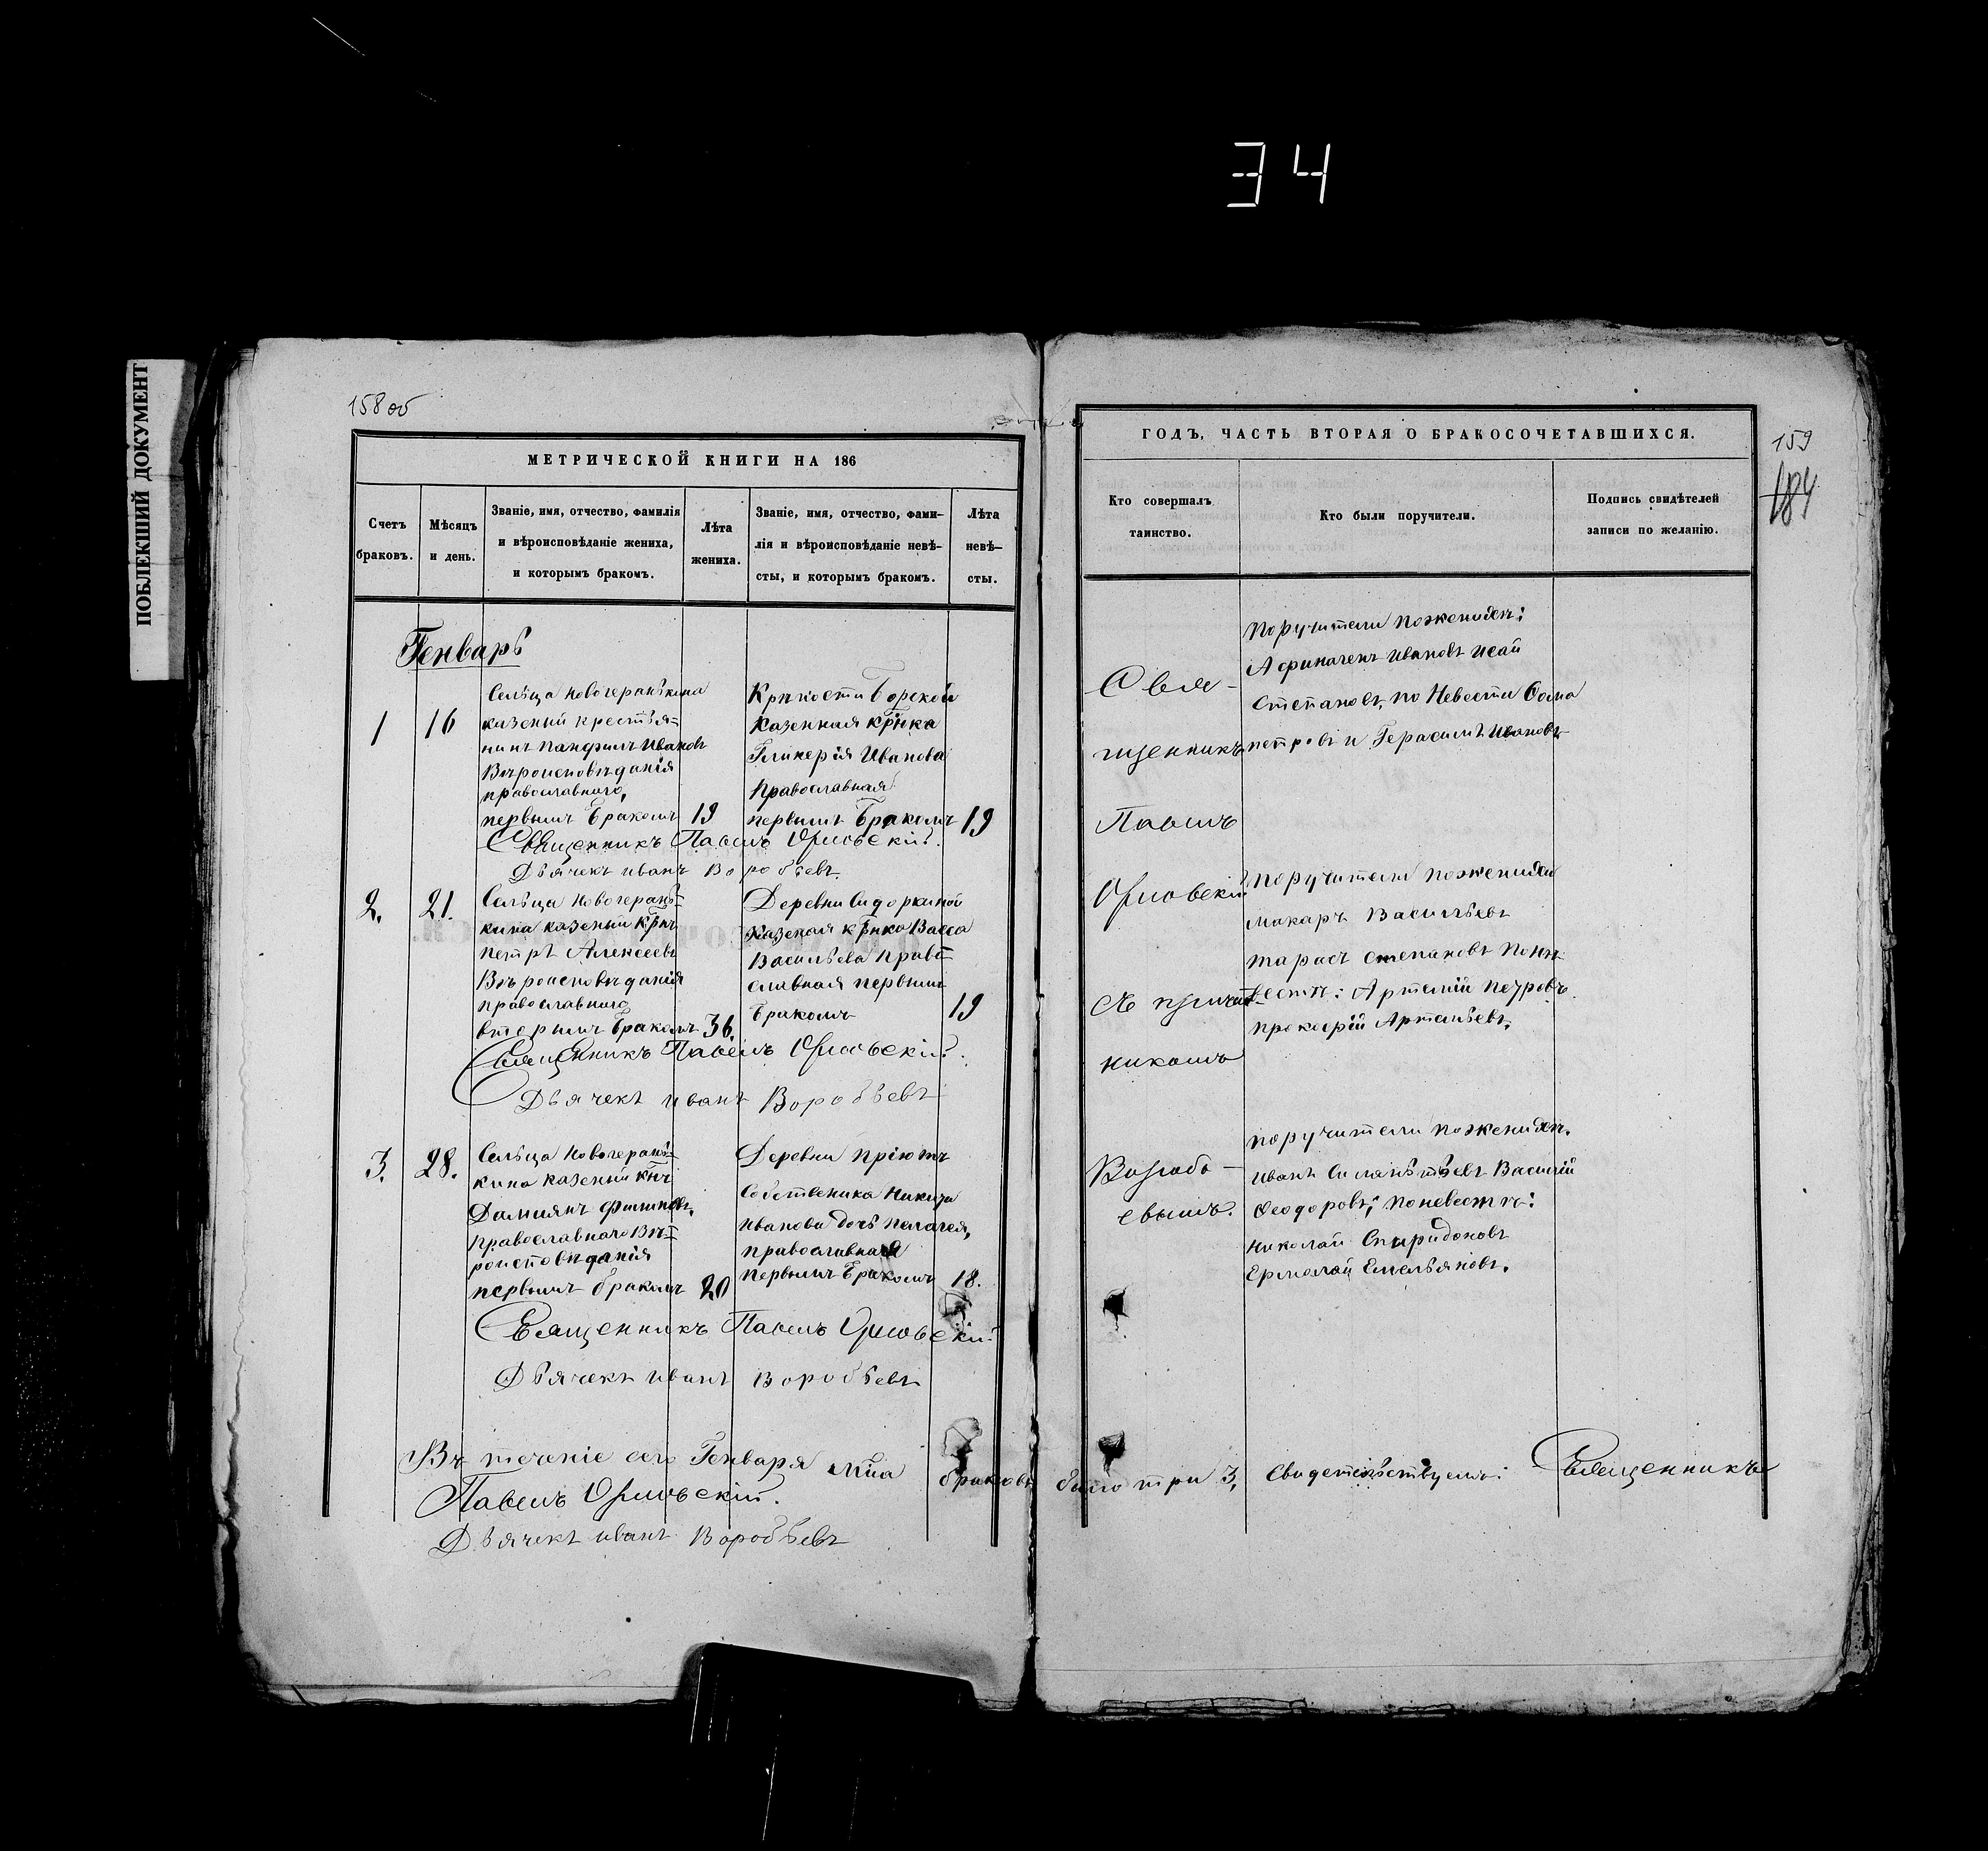 34
ПОБЛЕКШИЙ ДОКУМЕНТ
158 об
МЕТРИЧЕСКОЙ КНИГИ НА 186
Счетъ браковъ.
Мѣсяцъ и день.
Званіе, имя, отчество, фамилія
и вѣроисповѣданіе жениха,
и которымъ бракомъ.
Лѣта
жениха.
Званіе, имя, отчество, фами-
лія и вѣроисповѣданіе невѣ-
сты, и которымъ бракомъ.
Лѣта
невѣ-
сты.
Генварь
1
16
Сельца Новогеранькина
казеный крестья-
нинъ Панфилъ Ивановъ
Вѣроисповѣданія
православнаго,
первымъ бракомъ
19
Крѣпости Борской
Казенная кр̃нка
Гликерія Иванова
Православная
первымъ Бракомъ
19
Священникъ Павелъ Орловскій.
Дьячекъ Иванъ Воробьевъ.
2.
21.
Сельца Новогерань-
кина казеный кр̃нъ
Петръ Алексеевъ
Вѣроисповѣданія
православнаго
вторымъ бракомъ
36.
Деревни Сидоркиной
Казеная кр̃нка Васса
Васильева Право-
славная первымъ
Бракомъ
19
Священникъ Павелъ Орловскій.
Дьячекъ Иванъ Воробьевъ
3.
28.
Сельца Новогерань-
кина казеный кнъ
Дамиянъ Филиповъ,
православнаго Вѣ-
роисповѣданія
первымъ бракомъ
20
Деревни Пріютъ
Собственика Никиты
Иванова дочь Пелагея,
православная
Первымъ Бракомъ
18.
Священникъ Павелъ Орловскій.
Дьячекъ Иванъ Воробьевъ
Въ теченіе сего Генваря м̃ца браковъ было три 3, Свидетельствуемъ: Священникъ
Павелъ Орловскій.
Дьячекъ Иванъ Воробьевъ
159
184
ГОДЪ, ЧАСТЬ ВТОРАЯ О БРАКОСОЧЕТАВШИХСЯ.
Кто совершалъ
таинство.
Кто были поручители.
Подпись свидѣтелей
записи по желанію.
Свя-
щенникъ
Павелъ
Орловскій
съ причет-
никомъ
Воробь-
евымъ.
Поручители поженихѣ:
Афиногенъ Ивановъ Исай
Степановъ, по Невести Фома
Петровъ и Герасимъ Ивановъ
Поручители пожениха
Макаръ Васильевъ
Тарасъ Степановъ Поне-
вестѣ: Артемій Петровъ.
Прокофій Артемьевъ,
Поручители пожениху.
Иванъ Силантьевъ Василій
Феодоровъ, поневестѣ:
Николай Спиридоновъ
Ермолай Емельяновъ.